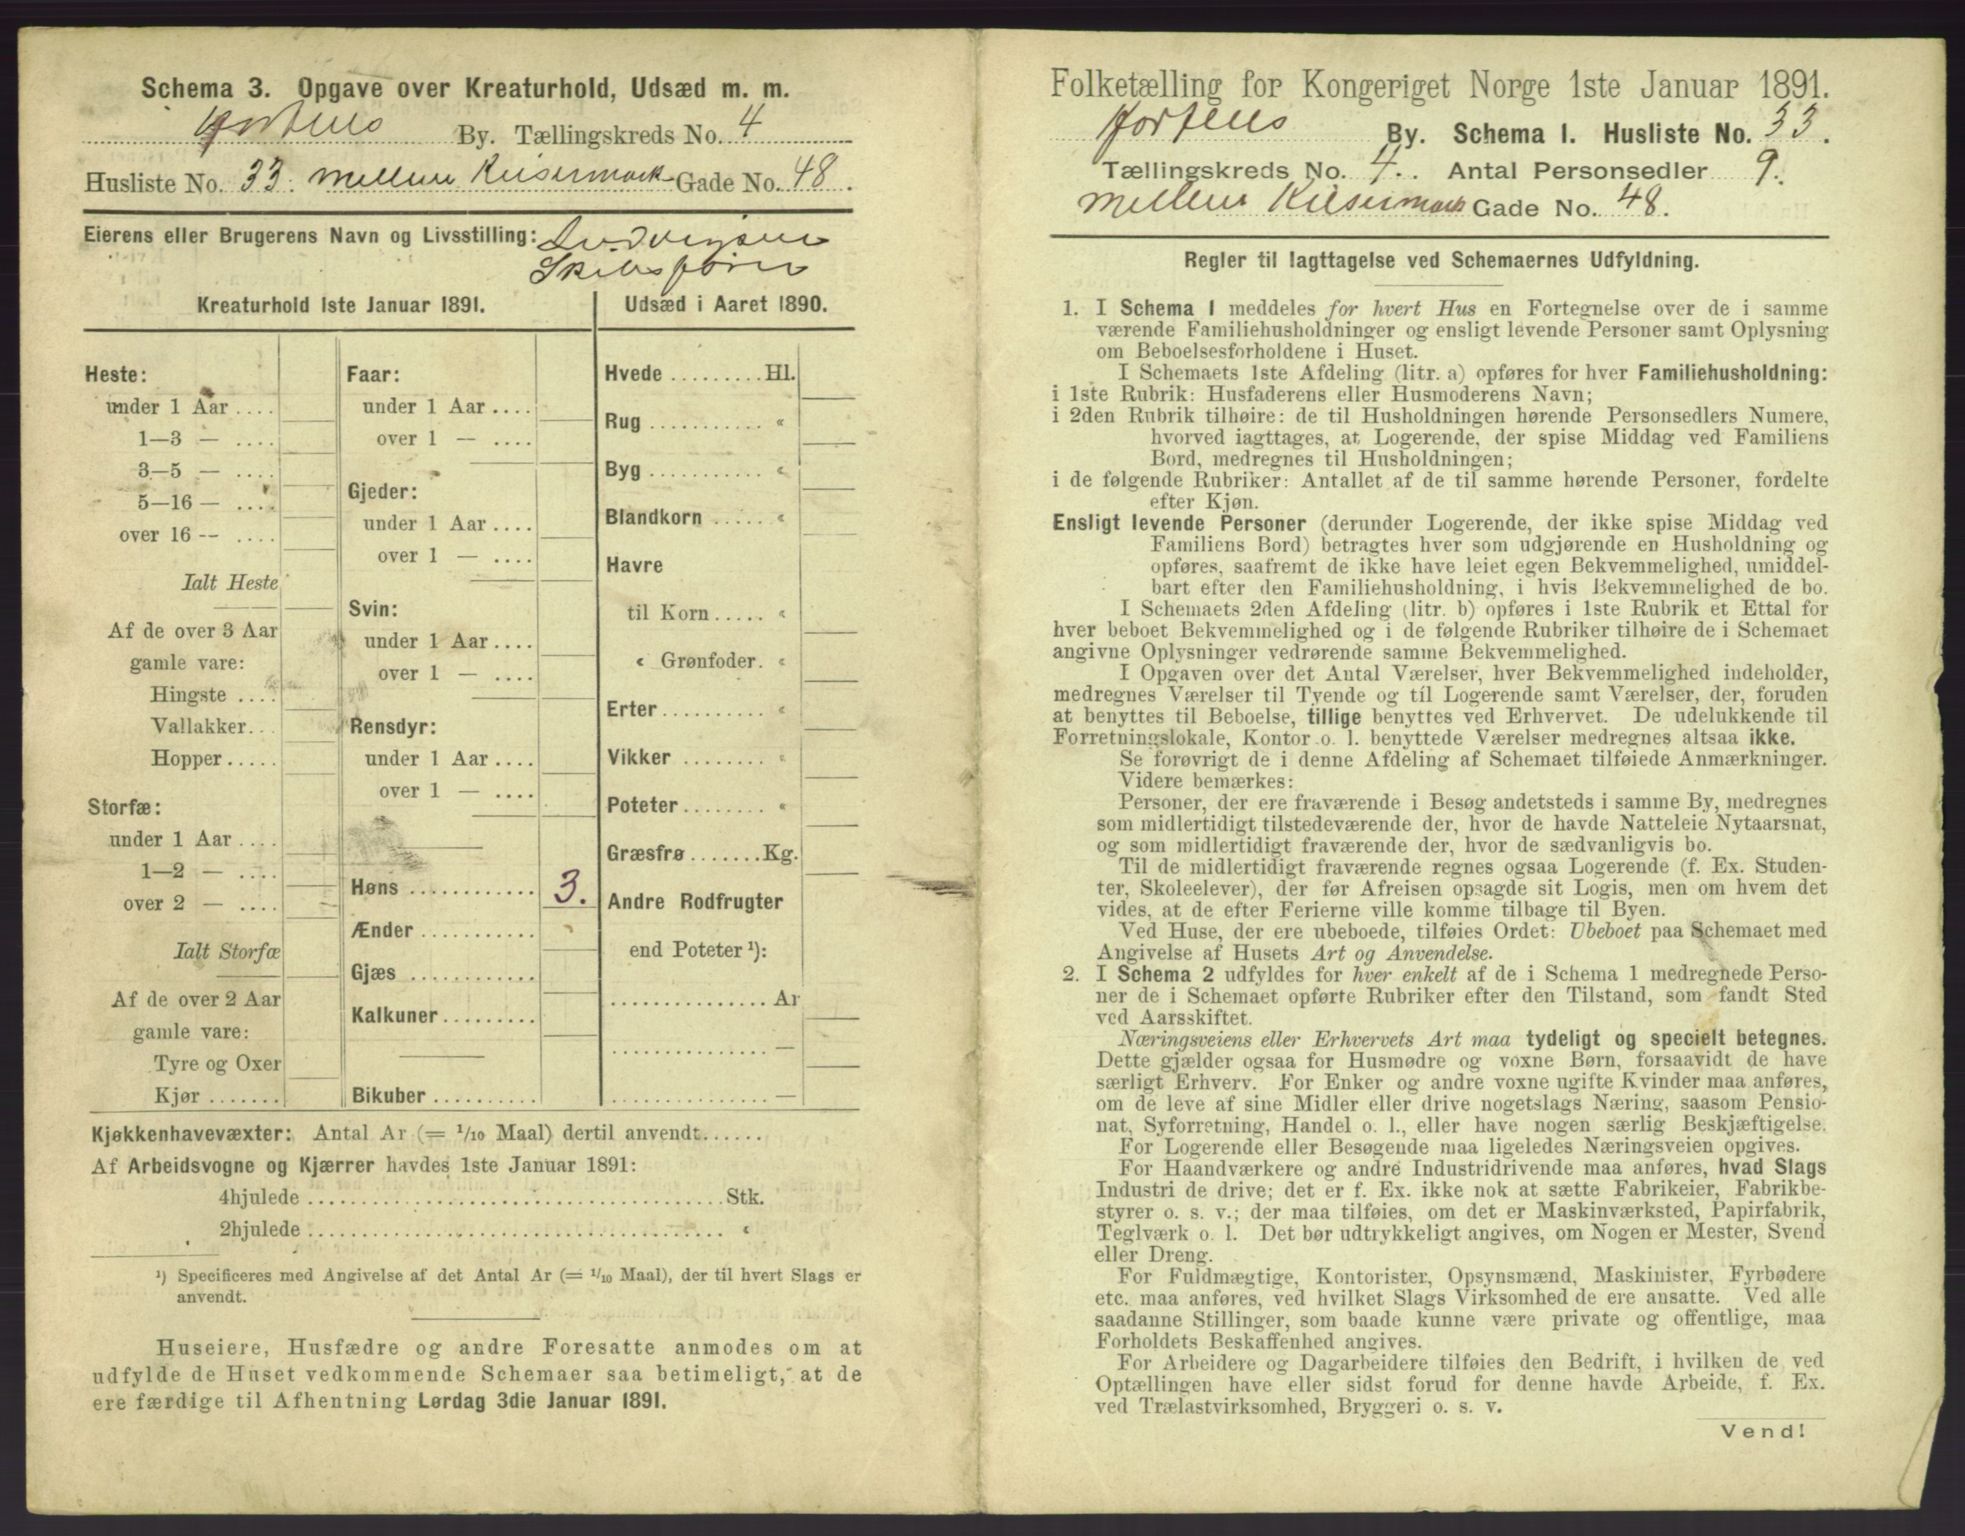 Schema 3. Opgave over Kreaturhold, Udsæd m. m.
Hortens By. Tællingskreds No. 4
Husliste No. 33. Mellem Keisermark Gade No. 48.
Eierens eller Brugerens Navn og Livsstilling: Ludvigsen
Skibsfører
Kreaturhold 1ste Januar 1891.
Heste:
under 1 Aar ....
1—3 — ....
3—5 — ....
5—16 — ....
over 16 -- ....
Ialt Heste
Af de over 3 Aar
gamle vare:
Hingste ....
Vallakker...
Hopper.....
Storfæ:
under 1 Aar ....
1—2 — ....
over 2 — ....
Ialt Storfæ
Af de over 2 Aar
gamle vare:
Tyre og Oxer
Kjør .......
Faar:
under 1 Aar ....
over 1 — ....
Gjeder:
under 1 Aar ....
over 1 — ....
Svin:
under 1 Aar ....
over 1 — ....
Rensdyr:
under 1 Aar ....
over 1 — ....
Høns ............ 3.
Ænder ...........
Gjæs ............
Kalkuner.........
Bikuber ..........
Udsæd i Aaret 1890.
Hvede .........Hl.
Rug ........... «
Byg ........... «
Blandkorn ...... «
Havre
til Korn..... «
« Grønfoder. «
Erter.......... «
Vikker ........ «
Poteter........ «
Græsfrø.......Kg.
Andre Rodfrugter
end Poteter ¹):
............... Ar
............... —
............... —
Kjøkkenhavevæxter: Antal Ar (= 1/10 Maal) dertil anvendt......
Af Arbeidsvogne og Kjærrer havdes 1ste Januar 1891:
4hjulede .......................................Stk.
2hjulede ....................................... «
¹) Specificeres med Angivelse af det Antal Ar (= 1/10 Maal), der til hvert Slags er
anvendt.
Huseiere, Husfædre og andre Foresatte anmodes om at
udfylde de Huset vedkommende Schemaer saa betimeligt, at de
ere færdige til Afhentning Lørdag 3die Januar 1891.
Folketælling for Kongeriget Norge 1ste Januar 1891.
Hortens By. Schema 1. Husliste No. 33.
Tællingskreds No. 4. Antal Personsedler 9.
Mellem Keisermark Gade No. 48.
Regler til Iagttagelse ved Schemaernes Udfyldning.
1. I Schema 1 meddeles for hvert Hus en Fortegnelse over de i samme
værende Familiehusholdninger og ensligt levende Personer samt Oplysning
om Beboelsesforholdene i Huset.
I Schemaets 1ste Afdeling (litr. a) opføres for hver Familiehusholdning:
i 1ste Rubrik: Husfaderens eller Husmoderens Navn;
i 2den Rubrik tilhøire: de til Husholdningen hørende Personsedlers Numere,
hvorved iagttages, at Logerende, der spise Middag ved Familiens
Bord, medregnes til Husholdningen;
i de følgende Rubriker: Antallet af de til samme hørende Personer, fordelte
efter Kjøn.
Ensligt levende Personer (derunder Logerende, der ikke spise Middag ved
Familiens Bord) betragtes hver som udgjørende en Husholdning og
opføres, saafremt de ikke have leiet egen Bekvemmelighed, umiddel-
bart efter den Familiehusholdning, i hvis Bekvemmelighed de bo.
I Schemaets 2den Afdeling (litr. b) opføres i 1ste Rubrik et Ettal for
hver beboet Bekvemmelighed og i de følgende Rubriker tilhøire de i Schemaet
angivne Oplysninger vedrørende samme Bekvemmelighed.
I Opgaven over det Antal Værelser, hver Bekvemmelighed indeholder,
medregnes Værelser til Tyende og til Logerende samt Værelser, der, foruden
at benyttes til Beboelse, tillige benyttes ved Erhvervet. De udelukkende til
Forretningslokale, Kontor o. l. benyttede Værelser medregnes altsaa ikke.
Se forøvrigt de i denne Afdeling af Schemaet tilføiede Anmærkninger.
Videre bemærkes:
Personer, der ere fraværende i Besøg andetsteds i samme By, medregnes
som midlertidigt tilstedeværende der, hvor de havde Natteleie Nytaarsnat,
og som midlertidigt fraværende der, hvor de sædvanligvis bo.
Til de midlertidigt fraværende regnes ogsaa Logerende (f. Ex. Studen-
ter, Skoleelever), der før Afreisen opsagde sit Logis, men om hvem det
vides, at de efter Ferierne ville komme tilbage til Byen.
Ved Huse, der ere ubeboede, tilføies Ordet: Ubeboet paa Schemaet med
Angivelse af Husets Art og Anvendelse.
2. I Schema 2 udfyldes for hver enkelt af de i Schema 1 medregnede Perso-
ner de i Schemaet opførte Rubriker efter den Tilstand, som fandt Sted
ved Aarsskiftet.
Næringsveiens eller Erhvervets Art maa tydeligt og specielt betegnes.
Dette gjælder ogsaa for Husmødre og voxne Børn, forsaavidt de have
særligt Erhverv. For Enker og andre voxne ugifte Kvinder maa anføres,
om de leve af sine Midler eller drive nogetslags Næring, saasom Pensio-
nat, Syforretning, Handel o. l., eller have nogen særlig Beskjæftigelse.
For Logerende eller Besøgende maa ligeledes Næringsveien opgives.
For Haandværkere og andre Industridrivende maa anføres, hvad Slags
Industri de drive; det er f. Ex. ikke nok at sætte Fabrikeier, Fabrikbe-
styrer o. s. v.; der maa tilføies, om det er Maskinværksted, Papirfabrik,
Teglværk o. l. Det bør udtrykkeligt angives, om Nogen er Mester, Svend
eller Dreng.
For Fuldmægtige, Kontorister, Opsynsmænd, Maskinister, Fyrbødere
etc. maa anføres, ved hvilket Slags Virksomhed de ere ansatte. Ved alle
saadanne Stillinger, som baade kunne være private og offentlige, maa
Forholdets Beskaffenhed angives.
For Arbeidere og Dagarbeidere tilføies den Bedrift, i hvilken de ved
Optællingen have eller sidst forud for denne havde Arbeide, f. Ex.
ved Trælastvirksomhed, Bryggeri o. s. v.
Vend!